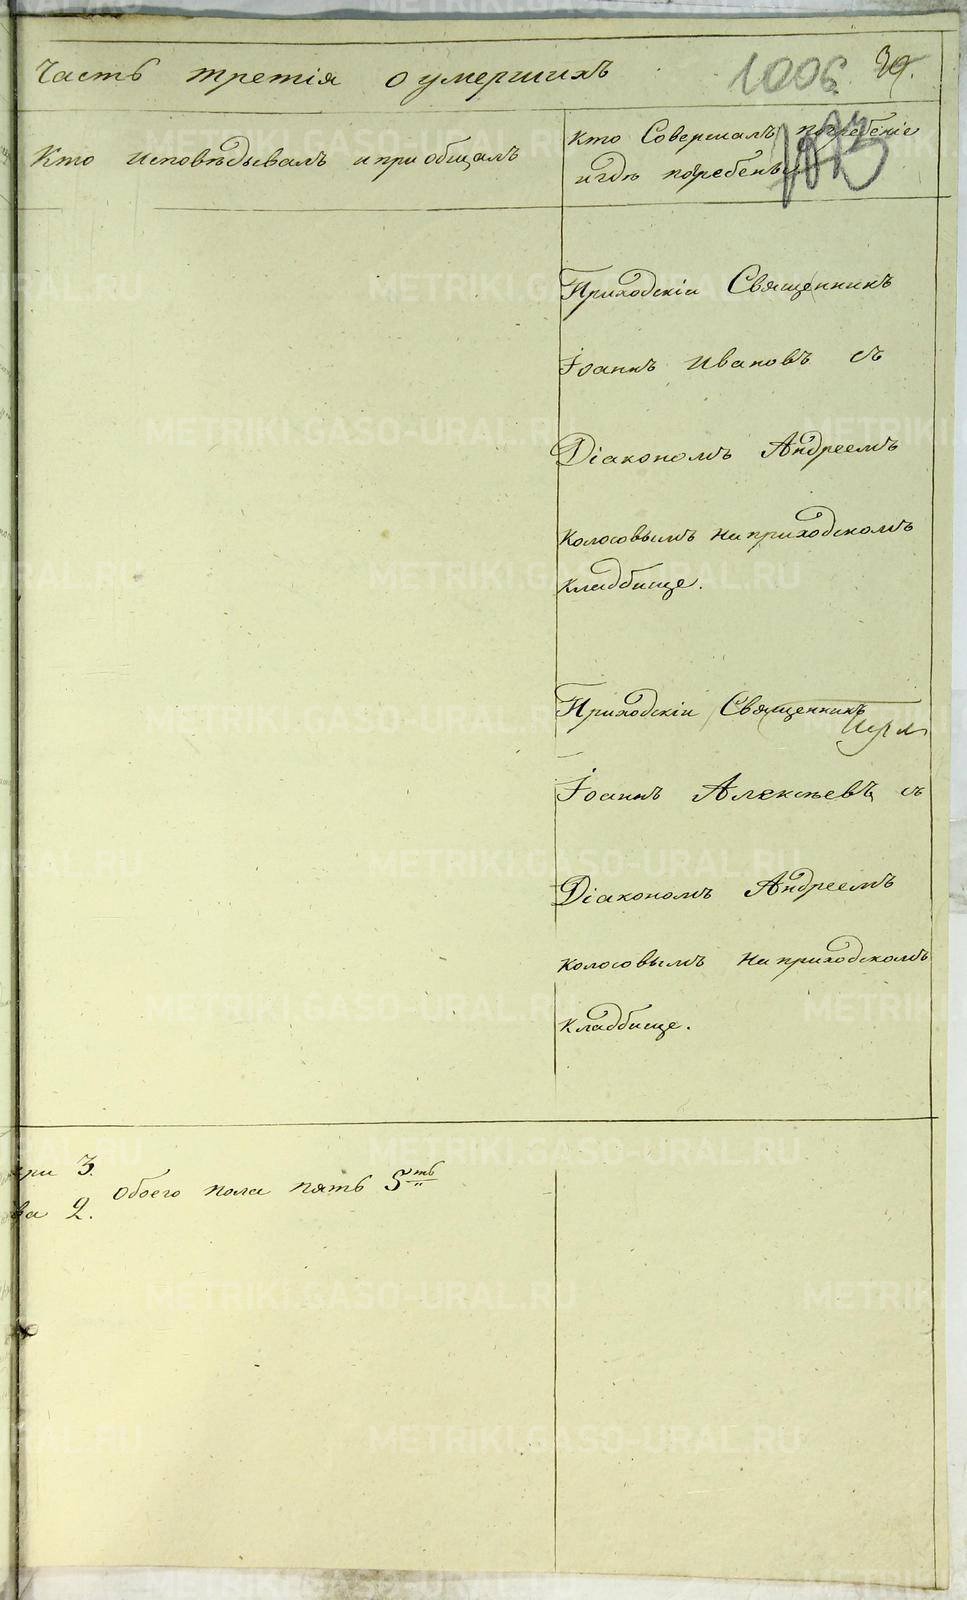 Часть третія о умершихъ 1006. 39.
Кто исповѣдывалъ и приобщалъ
Кто Совершалъ погребеніе
и гдѣ погребены
1013
Приходскій Священникъ
Іоаннъ Ивановъ съ
Діакономъ Андреемъ
Колосовымъ на приходскомъ
кладбище.
Приходскій Священникъ
Іоаннъ Алексѣевъ съ
Діакономъ Андреемъ
Колосовымъ на приходскомъ
кладбище.
три 3.
Обоего пола пять 5ть
ва 2.
METRIKI.GASO-URAL.RU